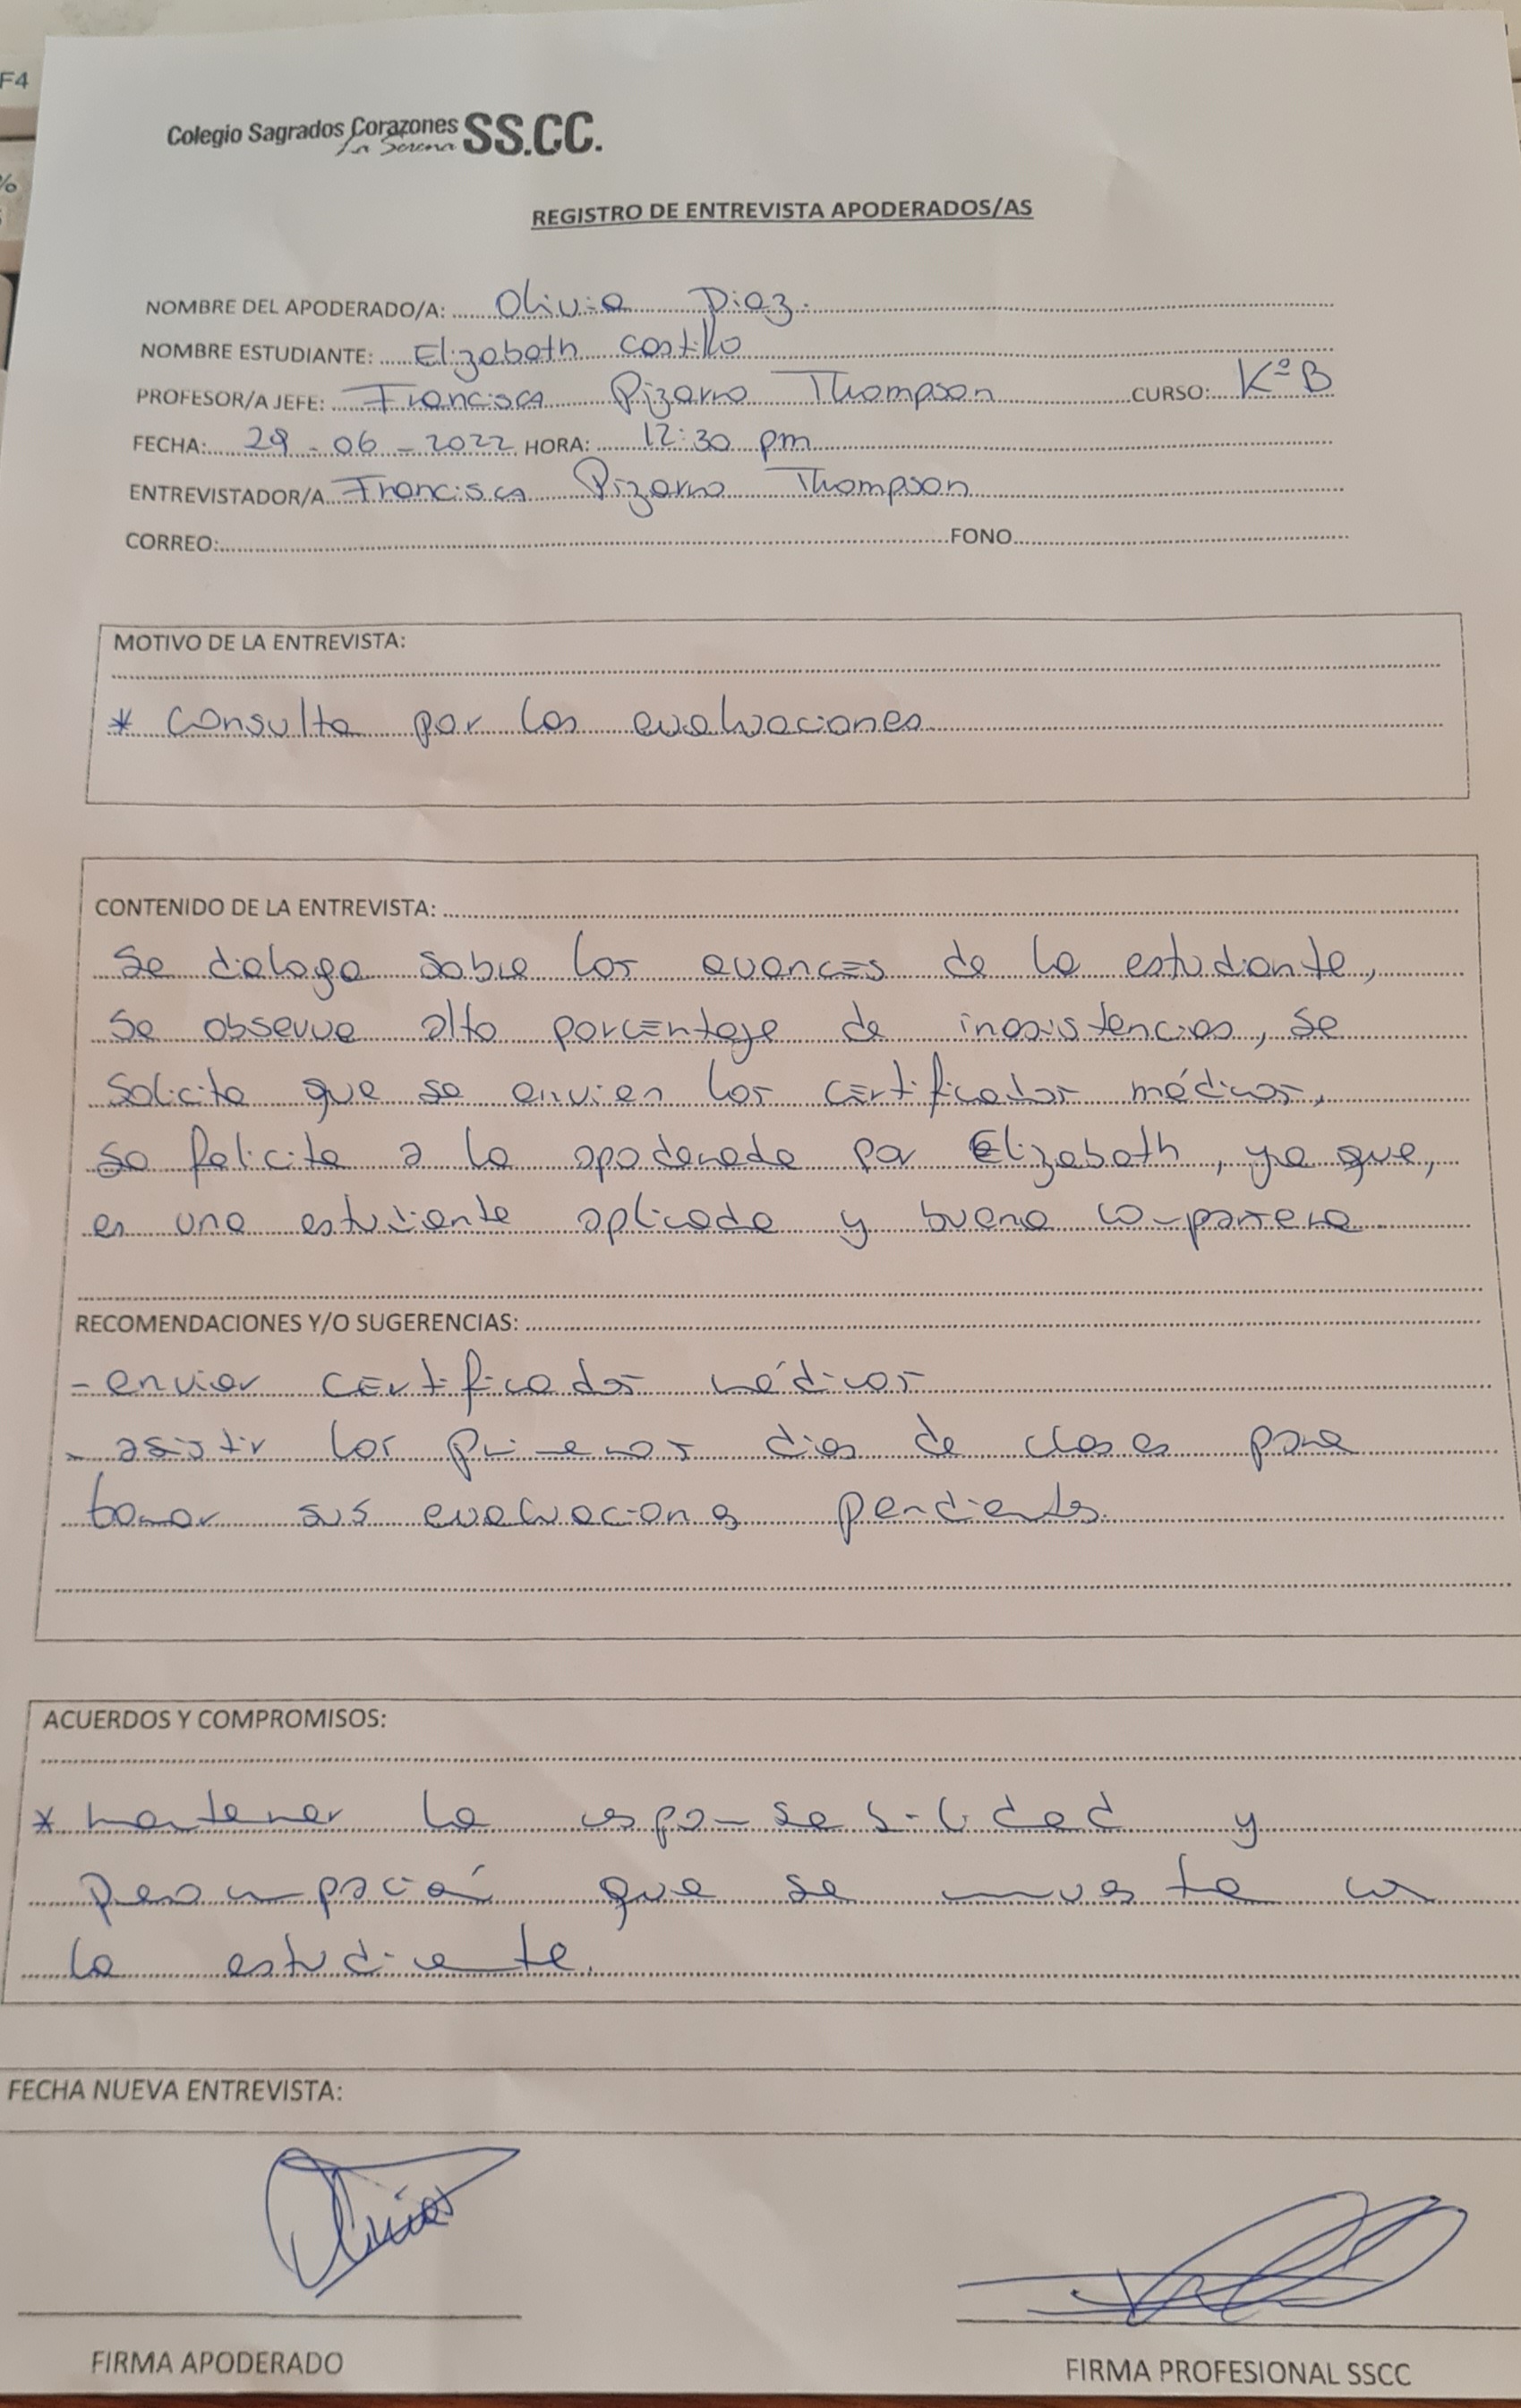 F4
%
Colegio Sagrados Corazones SS.CC.
La Serena
REGISTRO DE ENTREVISTA APODERADOS/AS
NOMBRE DEL APODERADO/A: Olivia Diaz.
NOMBRE ESTUDIANTE: Elizabeth Castillo
PROFESOR/A JEFE: Francisca Pizarro Thompson CURSO: Kº B
FECHA: 29-06-2022 HORA: 12:30 pm
ENTREVISTADOR/A Francisca Pizarro Thompson
CORREO: FONO
MOTIVO DE LA ENTREVISTA:
* Consulta por las evaluaciones
CONTENIDO DE LA ENTREVISTA:
Se dialoga sobre los avances de la estudiante,
Se observa alto porcentaje de inasistencias, se
solicita que se envien los certificados médicos,
se felicita a la apoderada por Elizabeth, ya que,
es una estudiante aplicada y buena compañera
RECOMENDACIONES Y/O SUGERENCIAS:
- enviar certificados médicos
- asistir los primeros dias de clases para
tomar sus evaluaciones pendientes.
ACUERDOS Y COMPROMISOS:
* mantener la responsabilidad y
preocupación que se muestra con
la estudiante.
FECHA NUEVA ENTREVISTA:
FIRMA APODERADO
FIRMA PROFESIONAL SSCC